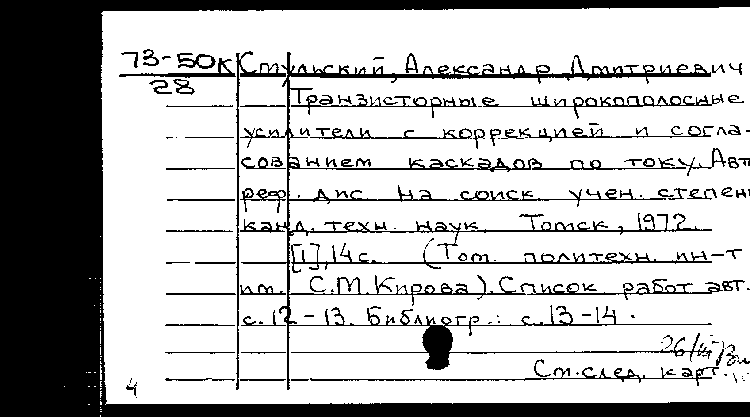 73-50К Стульский, Александр Дмитриевич
28
Транзисторные широкополосные
усилители с коррекцией и согла-
сованием каскадов по току. Авт
реф. дис на соиск учен. степен
канд. техн. наук. Томск, 1972.
[1], 14 с. (Том. политехн. ин-т
им. С.М. Кирова). Список работ авт.
с. 12-13. Библиогр.: с. 13-14.
26/III
См. след. карт.
4